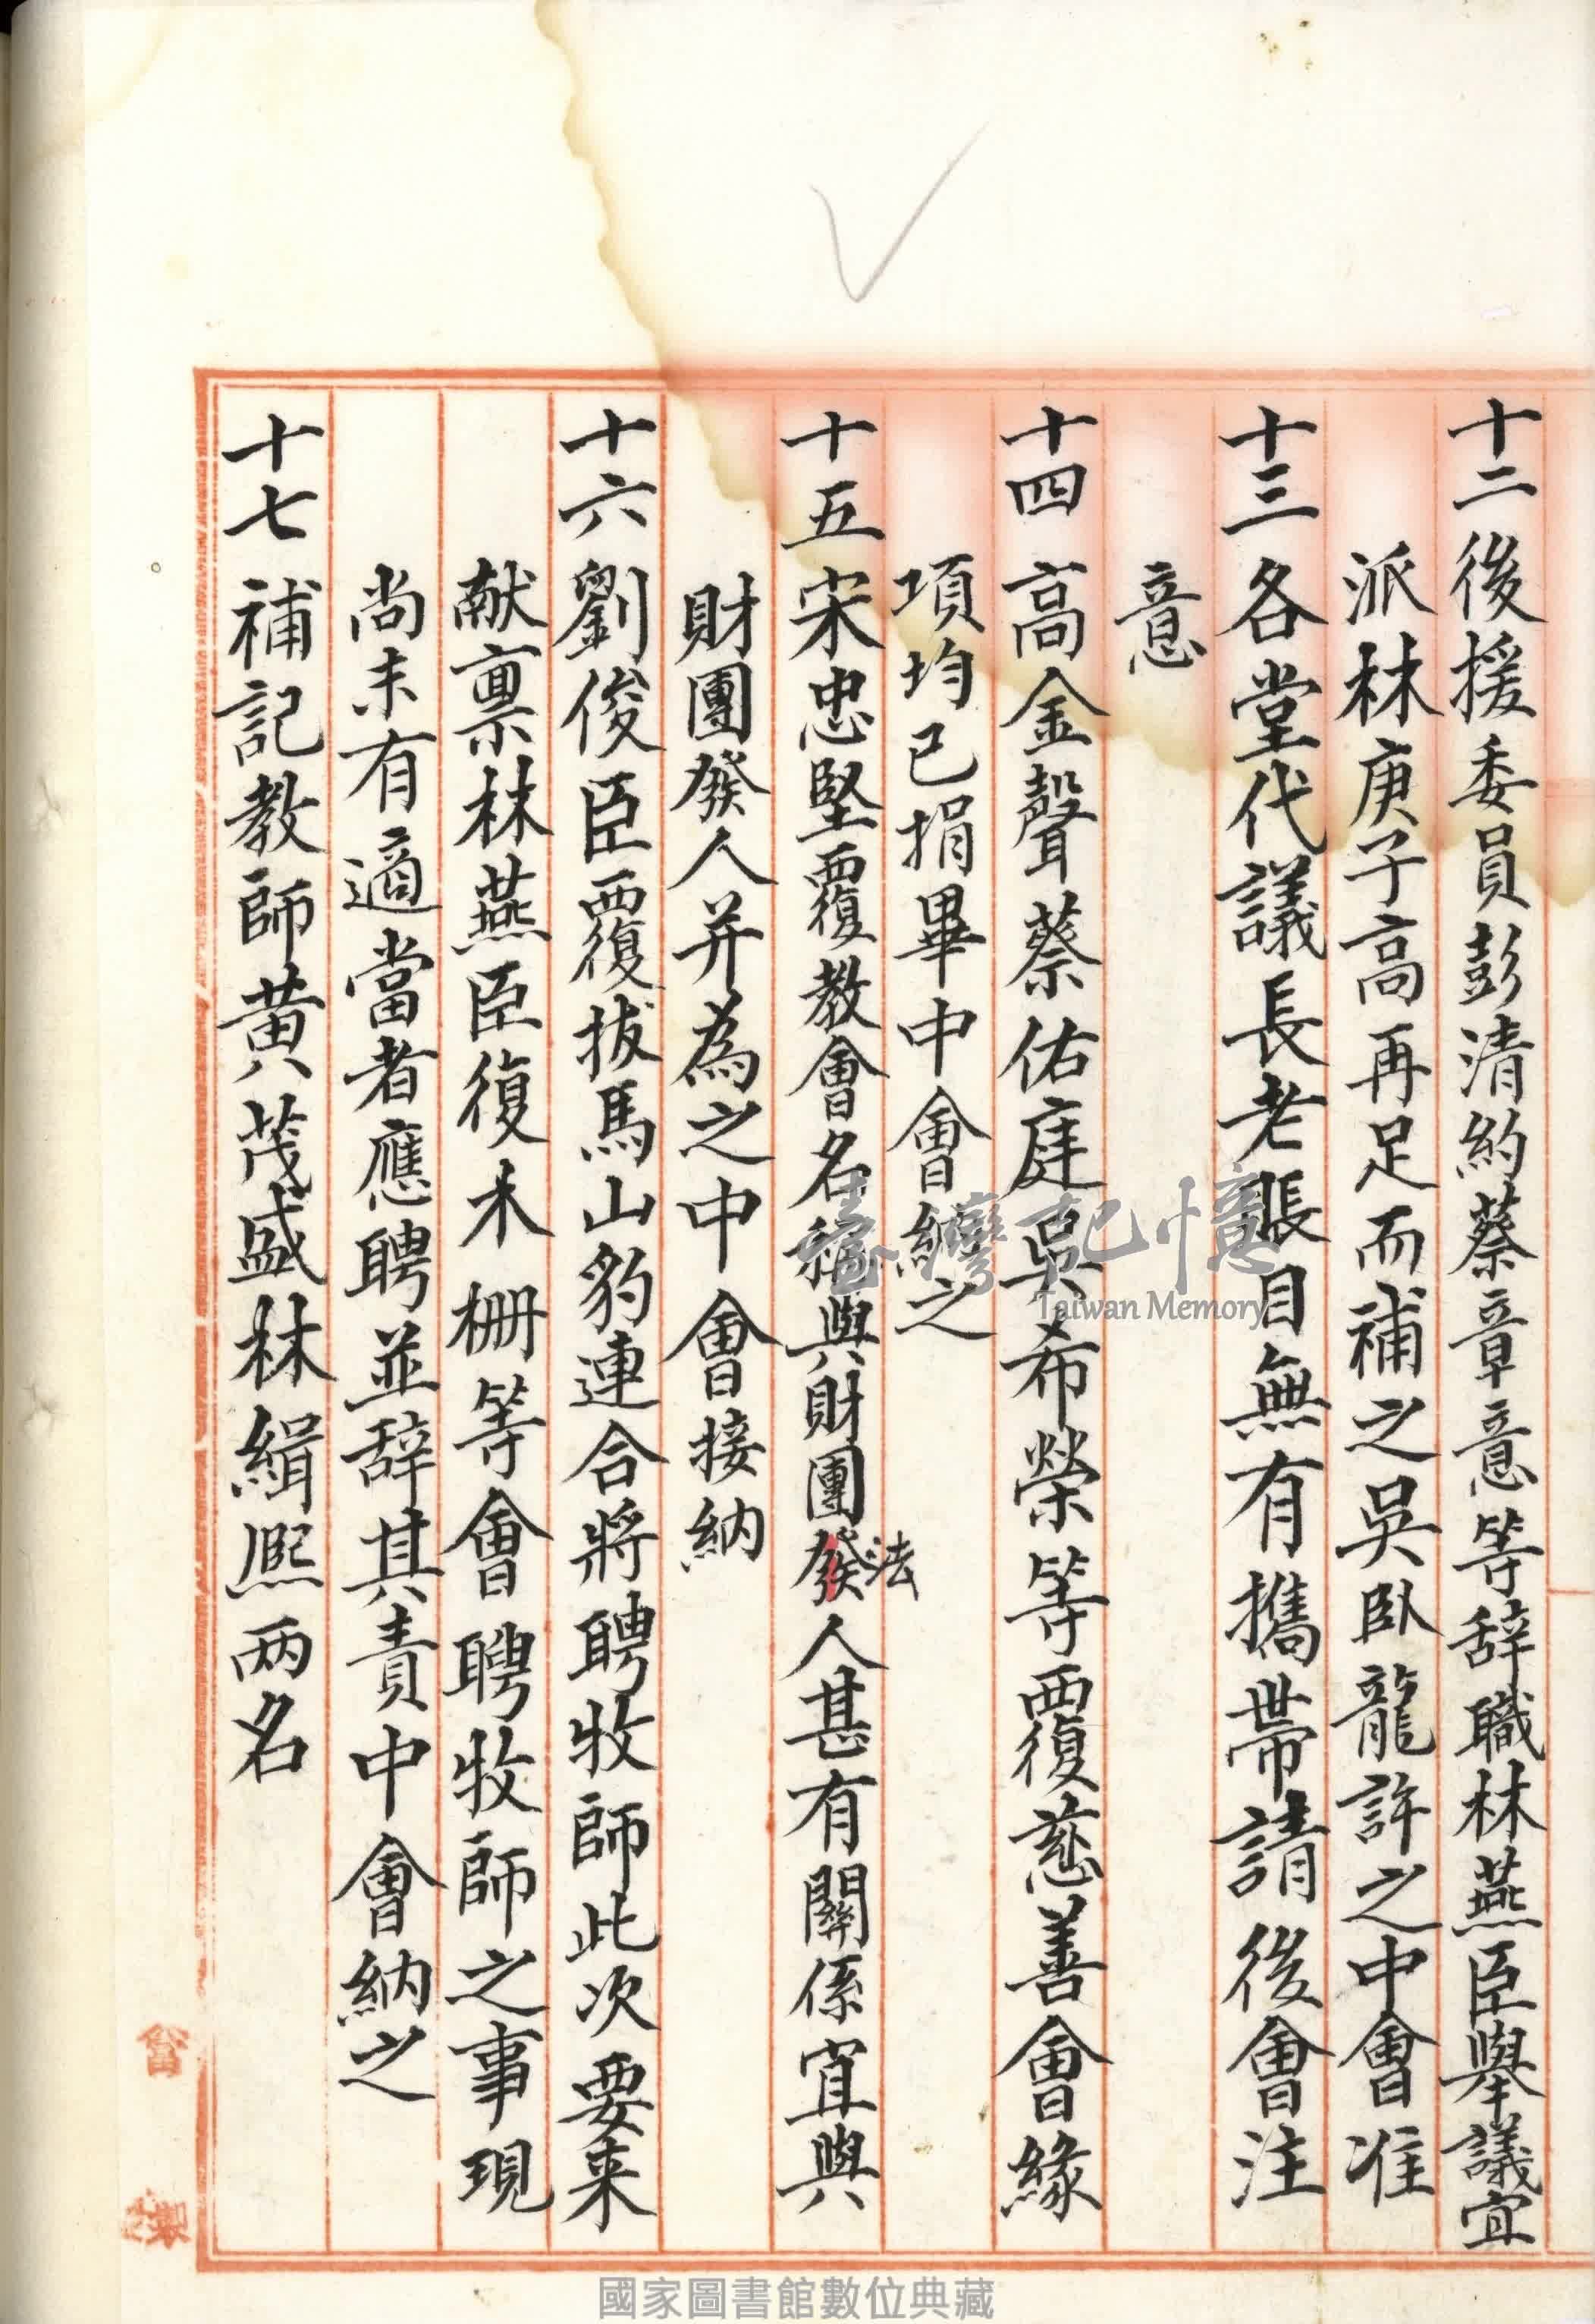 十二後援委員彭清約蔡章意等辞職林燕臣舉議宜
派林庚子高再足而補之吳臥龍許之中會准
十三各堂代議長老賬目無有攜帶請後會注
意
十四高金聲蔡佑庭吳希榮等覆慈善會緣
項均已捐畢中會納之
十五宋忠堅覆教會名稱與財團發人甚有關係宜與
法
財團發人并為之中會接納
十六劉俊臣覆拔馬山豹連合將聘牧師此次要来
献禀林燕臣復木柵等會聘牧師之事現
尚未有適當者應聘並辞其責中會納之
十七補記教師黃茂盛林緝熙两名
臺灣記憶
Taiwan Memory
國家圖書館數位典藏